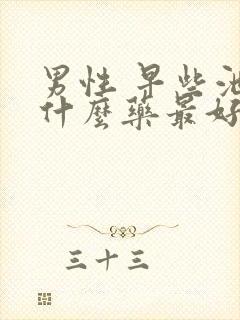 男性 早些
什麼藥最好
三十三